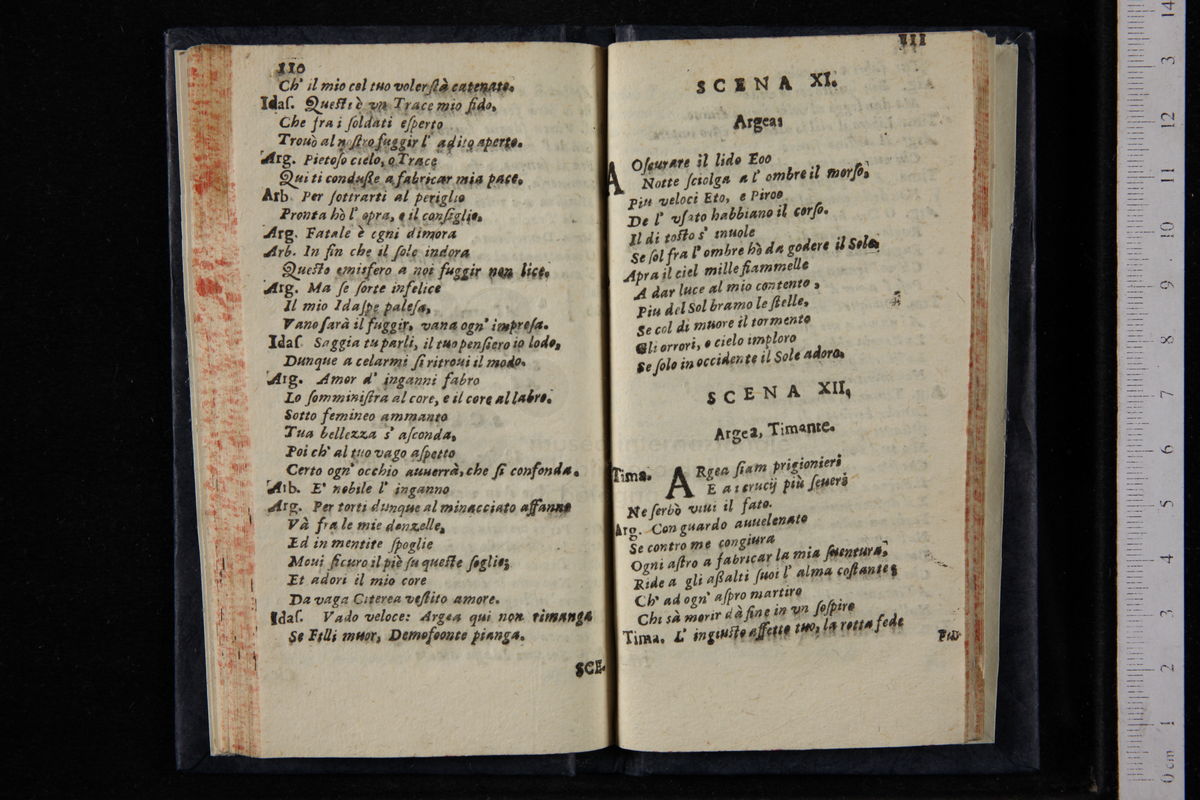 110
Ch' il mio col tuo voler ſtà catenato.
Idaſ. Queſti è vn Trace mio fido,
Che fra i ſoldati eſperto
Trouò al noſtro fuggir l' adito aperto.
Arg. Pietoſo cielo, o Trace
Qui ti conduſſe a fabricar mia pace.
Arb. Per ſottrarti al periglio
Pronta hò l' opra, e il conſiglio.
Arg. Fatale è ogni dimora
Arb. In fin che il ſole indora
Queſto emisfero a noi fuggir non lice.
Arg. Ma ſe ſorte infelice
Il mio Idaſpe paleſa,
Vano ſarà il fuggir, vana ogn' impreſa.
Idaſ. Saggia tu parli, il tuo penſiero io lodo,
Dunque a celarmi ſi ritroui il modo.
Arg. Amor d' inganni fabro
Lo ſomminiſtra al core, e il core al labro.
Sotto femineo ammanto
Tua bellezza s' aſconda,
Poi ch' al tuo vago aſpetto
Certo ogn' occhio auuerrà, che ſi confonda.
Arb. E' nobile l' inganno
Arg. Per torti dunque al minacciato affanno
Và fra le mie donzelle,
Ed in mentite ſpoglie
Moui ſicuro il piè ſu queſte ſoglie;
Et adori il mio core
Da vaga Citerea veſtito amore.
Idaſ. Vado veloce: Argea qui non rimanga
Se Filli muor, Demofoonte pianga.
SCE-
III
SCENA XI.
Argea;
A Oſcurare il lido Eoo
Notte ſciolga a l' ombre il morſo,
Piu veloci Eto, e Piroo
De l' vſato habbiano il corſo.
Il di toſto s' inuole
Se ſol fra l' ombre hò da godere il Sole,
Apra il ciel mille fiammelle
A dar luce al mio contento,
Piu del Sol bramo le ſtelle,
Se col di muore il tormento
Gli orrori, o cielo imploro
Se ſolo in occidente il Sole adoro.
SCENA XII,
Argea, Timante.
Tima. ARgea ſiam prigionieri
E a i crucij più ſeueri
Ne ſerbò viui il fato.
Arg. Con guardo auuelenato
Se contro me congiura
Ogni aſtro a fabricar la mia ſuentura,
Ride a gli aſſalti ſuoi l' alma coſtante;
Ch' ad ogn' aſpro martiro
Chi sà morir dà fine in vn ſoſpiro
Tima. L' ingiuſto affetto tuo, la rotta fede